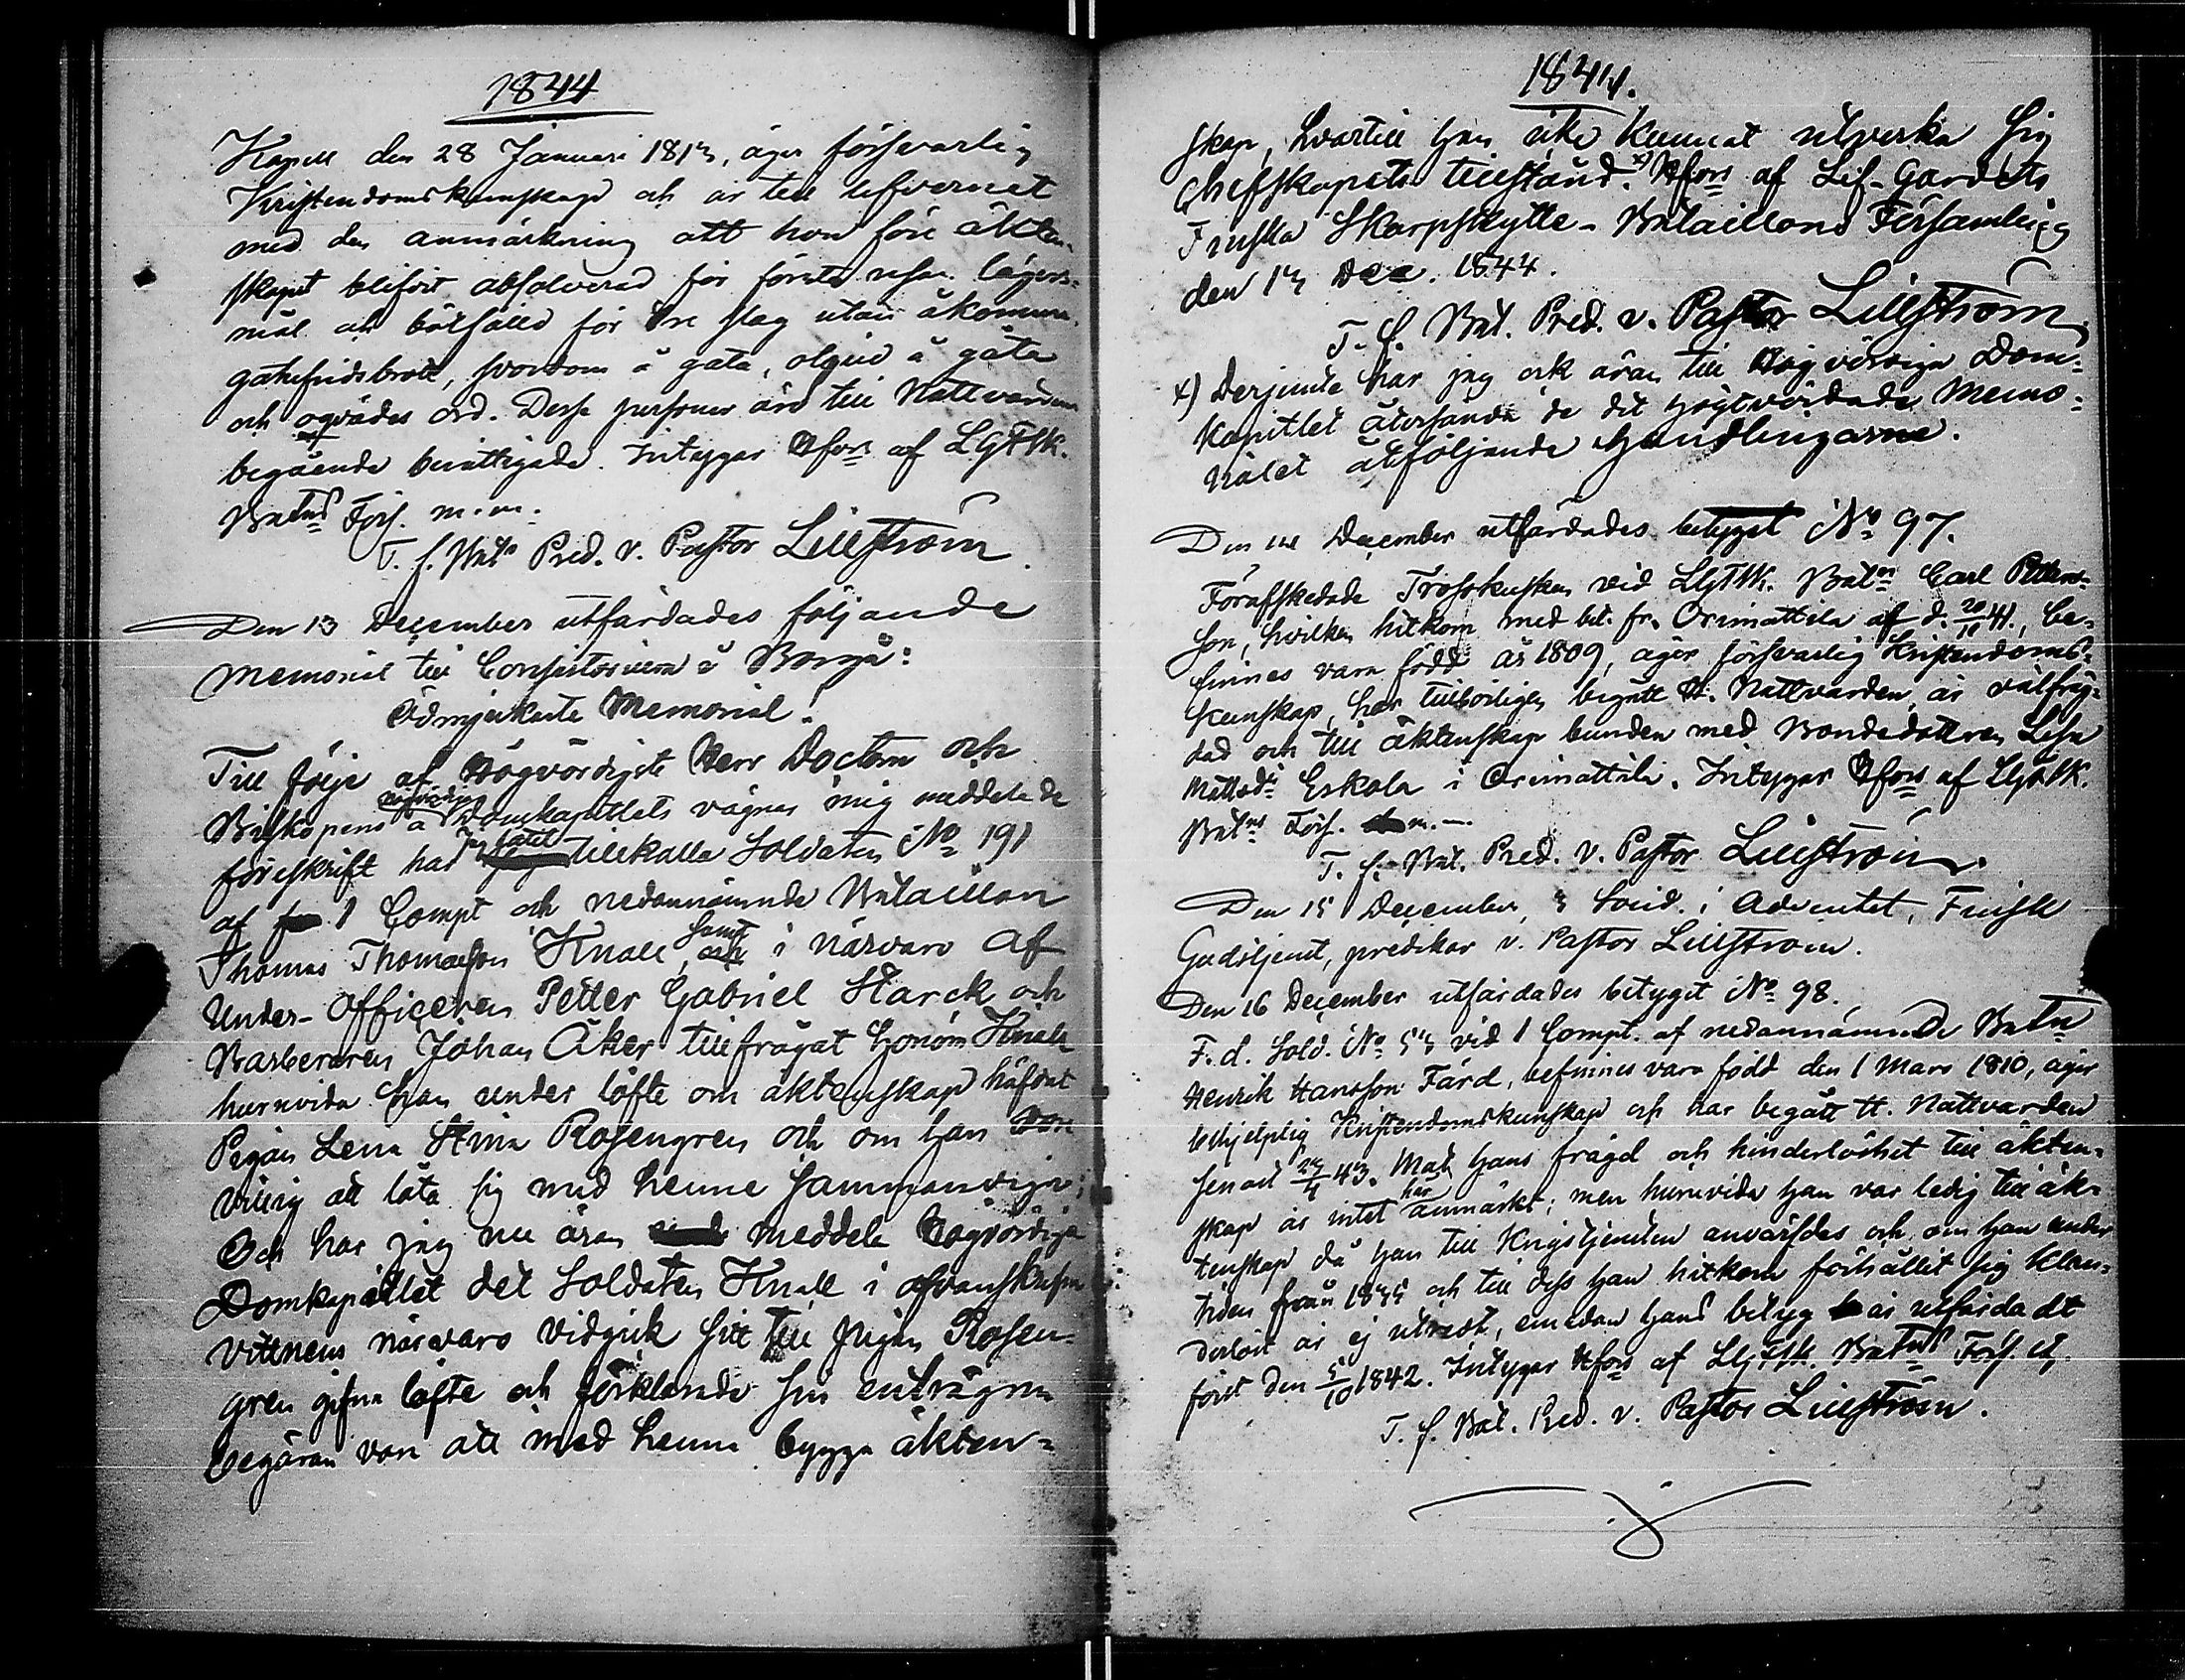 1844
Kapell den 28 Januari 1813, äger försvarlig
Kristendomskunskap och är till lefvernet
med den anmärkning att hon före äkten-
skapet blifvit absolverad för första resan lägers-
mål och bötfälld för tre slag utan åkommor,
gatufridsbrott, svordom å gata, oljud å gata
och oqvädes ord. Dessa personer äro till Nattvardens
begående berättigade. Intygar Hfors af LGFSk.
Batns Förs. m.m.
T. f. Bats Pred. v. Pastor Lillström
Den 13 December utfärdades följande
Memorial till Consistorium i Borgå:
Ödmjukaste Memorial!
Till följe af Högvördigste Herr Doctorn och
Biskopens å Högvördiga Domkapitlets vägnar mig meddelade
föreskrift har jag låtit tillkalla Soldaten No 191
af 1 Compt och nedannämnde Bataillon
Thomas Thomasson Knall, samt i närvaro af
Under-Officeren Petter Gabriel Starck och
Barberaren Johan Åker tillfrågat honom Knall
huruvida han under löfte om äktenskap häfdat
Pigan Lena Stina Rosengren och om han vore
villig att låta sig med henne sammanviga;
Och har jag nu äran meddela Högvördiga
Domkapitlet det Soldaten Knall i ofvanskrefne
vittnens närvaro vidgick sitt till pigan Rosen-
gren gifna löfte och förklarade sin enträgna
begäran vara att med henne bygga äkten-
1844.
skap, hvartill han icke kunnat utverka sig
Chefskapets tillstånd. x) Hfors af Lif-Gardets
Finska Skarpskytte-Bataillons Församling
den 13 Dec. 1844.
T. f. Bat. Pred. v. Pastor Lillström
x) Derjemte har jag ock äran till Högvördiga Dom-
Kapitlet återsända de det högtvördade Memo-
rialet åtföljande Handlingarne.
Den 14 December utfärdades betyget No 97.
Förafskedade Trosskusken vid LGFSk. Batn Carl Petters-
son, hvilken hitkom med bet. fr. Orimattila af d. 20/11 41, be-
finnes vara född år 1809, äger försvarlig Kristendoms-
kunskap, har tillbörligen begått H. Nattvarden, är välfräj-
dad och till äktenskap bunden med Bondedottren Lisa
Mattsdr Eskola i Orimattila. Intygar Hfors af LGFSk.
Batns Förs. m.—
T. f. Bat. Pred. v. Pastor Lillström.
Den 15 December, 3 Sönd. i Adventet, Finsk
Gudstjenst, predikar v. Pastor Lillström.
Den 16 December utfärdades betyget No 98.
F. d. Sold. No 53 vid 1 Compt. af nedannämnde Batn
Henrik Hansson Färd, befinnes vara född den 1 Mars 1810, äger
behjelplig Kristendomskunskap och har begått H. Nattvarden
senast 23/4 43. Mot hans frägd och hinderlöshet till äkten-
skap är intet här anmärkt; men huruvida han var ledig till äk-
tenskap då han till Krigstjensten anvärfdes och om han under
tiden från 1835 och till dess han hitkom förhållit sig klan-
derlöst är ej utredt, emedan hans betyg är utfärdadt
först den 5/10 1842. Intygar Hfors af LGFSk. Batns Förs. et.
T. f. Bat. Pred. v. Pastor Lillström.